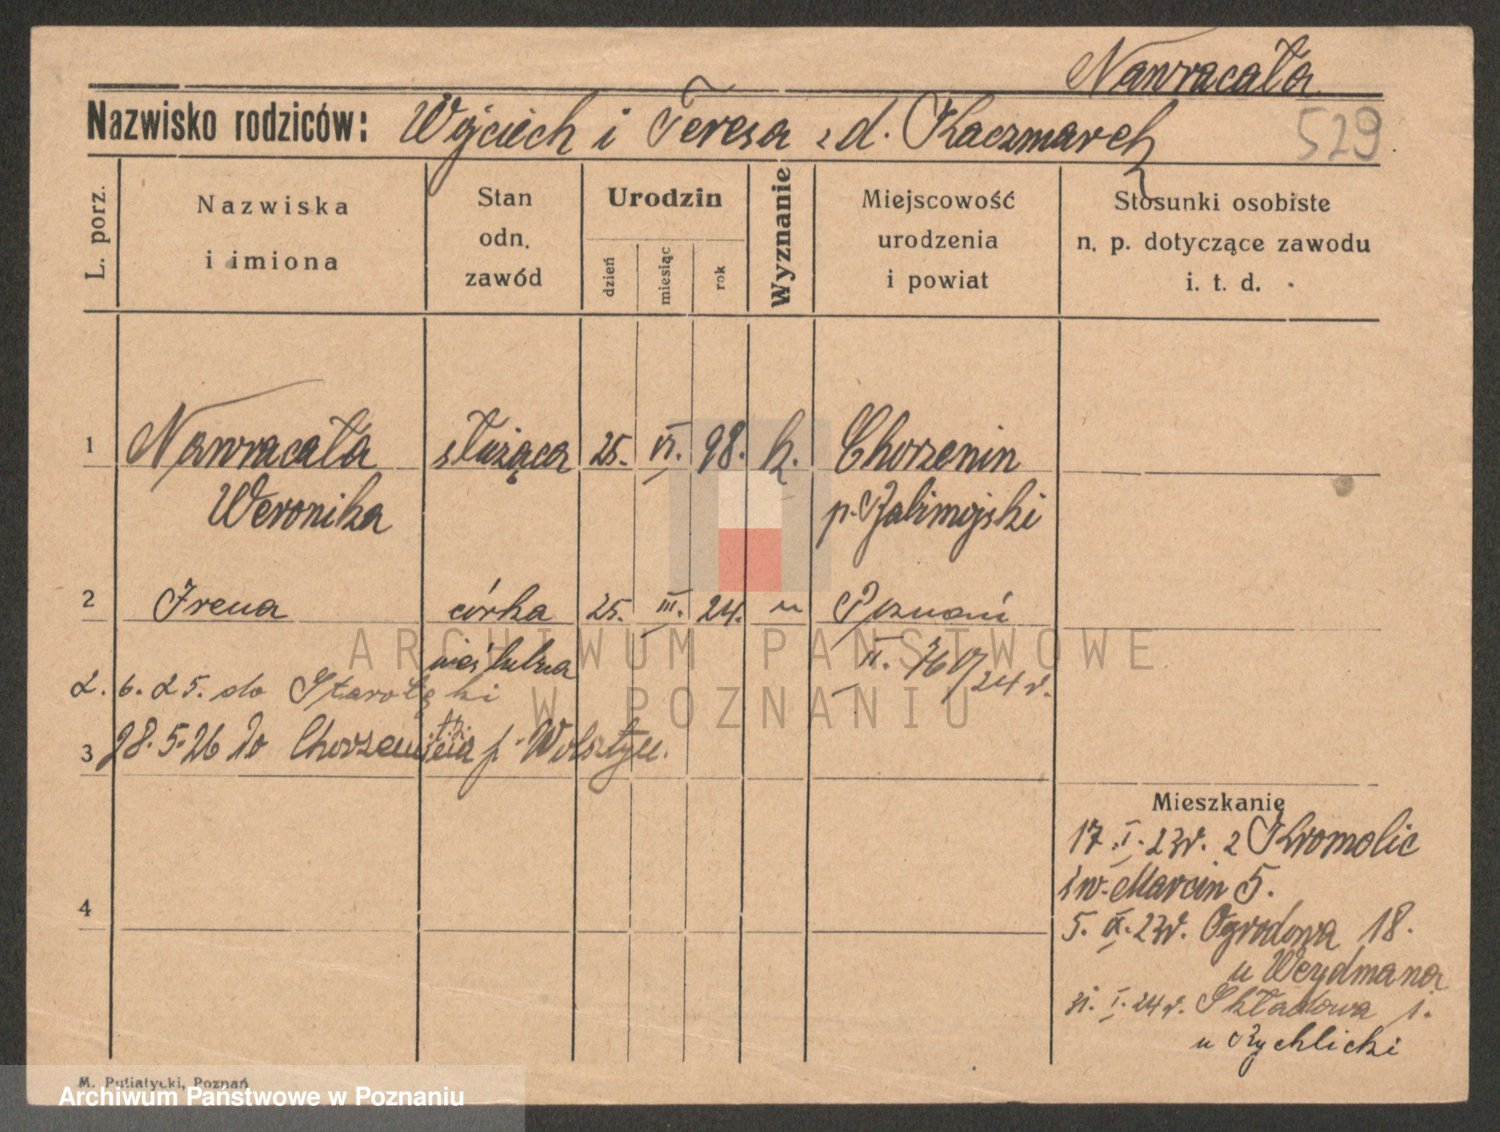 Nawracała
Nazwisko rodziców: Wojciech i Teresa z d. Kaczmarek
529
L. porz.
Nazwiska
i imiona
Stan
odn.
zawód
Urodzin
dzień
miesiąc
rok
Wyznanie
Miejscowość
urodzenia
i powiat
Stosunki osobiste
n. p. dotyczące zawodu
i. t. d.
1 Nawracała służąca 25. VI. 98. k. Chorzenin
Weronika p.
2 Irena córka 25. III. 24. " Poznań
nieślubna II. 760/24 r.
2. 6. 25. do Starołęki
3 28.5.26 do p. Wolsztyn.
4
Mieszkanie
17. I. 23r. z Kromolic
św. Marcin 5.
5. IX. 23r. Ogrodowa 18.
u Weydmana
I. 24 r. Składowa
u Rychlicki
M. Putiatycki, Poznań
ARCHIWUM PAŃSTWOWE
W POZNANIU
Archiwum Państwowe w Poznaniu